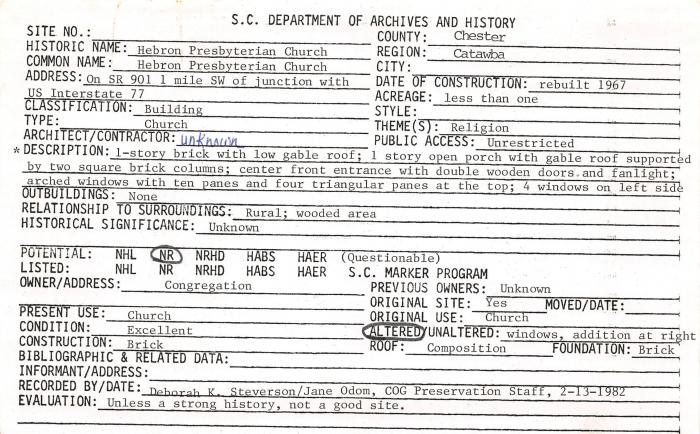 S.C. DEPARTMENT OF ARCHIVES AND HISTORY
SITE NO.:
COUNTY: Chester
HISTORIC NAME: Hebron Presbyterian Church
REGION: Catawba
COMMON NAME: Hebron Presbyterian Church
CITY:
ADDRESS: On SR 901 1 mile SW of junction with
US Interstate 77
DATE OF CONSTRUCTION: rebuilt 1967
ACREAGE: less than one
CLASSIFICATION: Building
STYLE:
TYPE: Church
THEME(S): Religion
ARCHITECT/CONTRACTOR: unknown
PUBLIC ACCESS: Unrestricted
* DESCRIPTION: 1-story brick with low gable roof; 1 story open porch with gable roof supported
by two square brick columns; center front entrance with double wooden doors and fanlight;
arched windows with ten panes and four triangular panes at the top; 4 windows on left side
OUTBUILDINGS: None
RELATIONSHIP TO SURROUNDINGS: Rural; wooded area
HISTORICAL SIGNIFICANCE: Unknown
POTENTIAL: NHL NR NRHD HABS HAER (Questionable)
LISTED: NHL NR NRHD HABS HAER S.C. MARKER PROGRAM
OWNER/ADDRESS: Congregation
PREVIOUS OWNERS: Unknown
ORIGINAL SITE: Yes MOVED/DATE:
PRESENT USE: Church
ORIGINAL USE: Church
CONDITION: Excellent
ALTERED/UNALTERED: windows, addition at right
CONSTRUCTION: Brick
ROOF: Composition FOUNDATION: Brick
BIBLIOGRAPHIC & RELATED DATA:
INFORMANT/ADDRESS:
RECORDED BY/DATE: Deborah K. Steverson/Jane Odom, COG Preservation Staff, 2-13-1982
EVALUATION: Unless a strong history, not a good site.